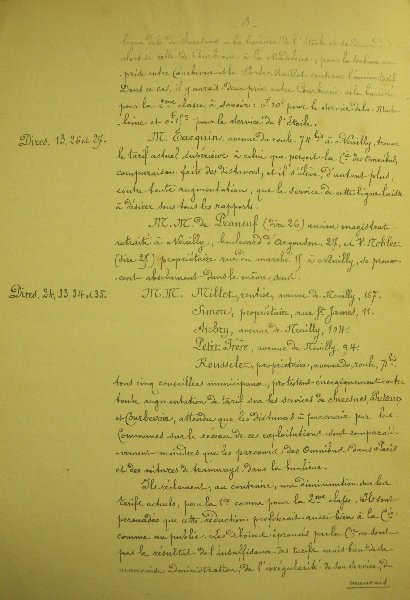 - 5 -
ligne dite de Suresnes à la barrière de l'Etoile et se demande
alors si celle de Courbevoie à la Madeleine, pour la section com-
prise entre Courbevoie et la Porte Maillot conserve l'ancien tarif.
Dans ce cas, il y aurait deux prix entre Courbevoie et la barrière
pour la 2ème classe à savoir: 0f 10c pour le service de la Made-
leine et 0f 15c pour le service de l'Etoile.
Dires. 13, 26 et 27.
M. Tarquin, avenue du roule, 74 bis à Neuilly, trouve
le tarif actuel supérieur à celui que perçoit la Cie des Omnibus,
comparaison faite des distances, et il s'élève d'autant plus
contre toute augmentation, que le service de cette ligne laisse
à désirer sous tous les rapports.
M.M. de (dire 26) ancien magistrat
retraité à Neuilly, boulevard d'Argenson, 27, et V. Noblet
(dire 27) propriétaire rue du marché 15 à Neuilly, se pronon-
cent absolument dans le même sens.
Dires. 24, 33, 34 et 35.
M.M. Millet, rentier, avenue de Neuilly, 167.
Simon, propriétaire, rue St James, 11.
Aubry, avenue de Neuilly, 104.
Petit Frère, avenue de Neuilly, 94.
Rousselet, propriétaire, avenue du roule, 7 bis.
tous cinq conseillers municipaux, protestent énergiquement contre
toute augmentation de tarif sur les services de Suresnes, Puteaux
et Courbevoie, attendu que les distances à parcourir par les
Communes sur le réseau de ces exploitations sont comparati-
vement moindres que les parcours des Omnibus dans Paris
et des voitures de tramways dans la banlieue.
Ils réclament, au contraire, une diminution sur les
tarifs actuels, pour la 1ère comme pour la 2ème classe. Ils sont
persuadés que cette réduction profiterait aussi bien à la Cie
comme au public. Les déboires éprouvés par la Cie ne sont
pas le résultat de l'insuffisance des tarifs mais bien de sa
mauvaise administration, de l'irrégularité de son service, du
mauvais